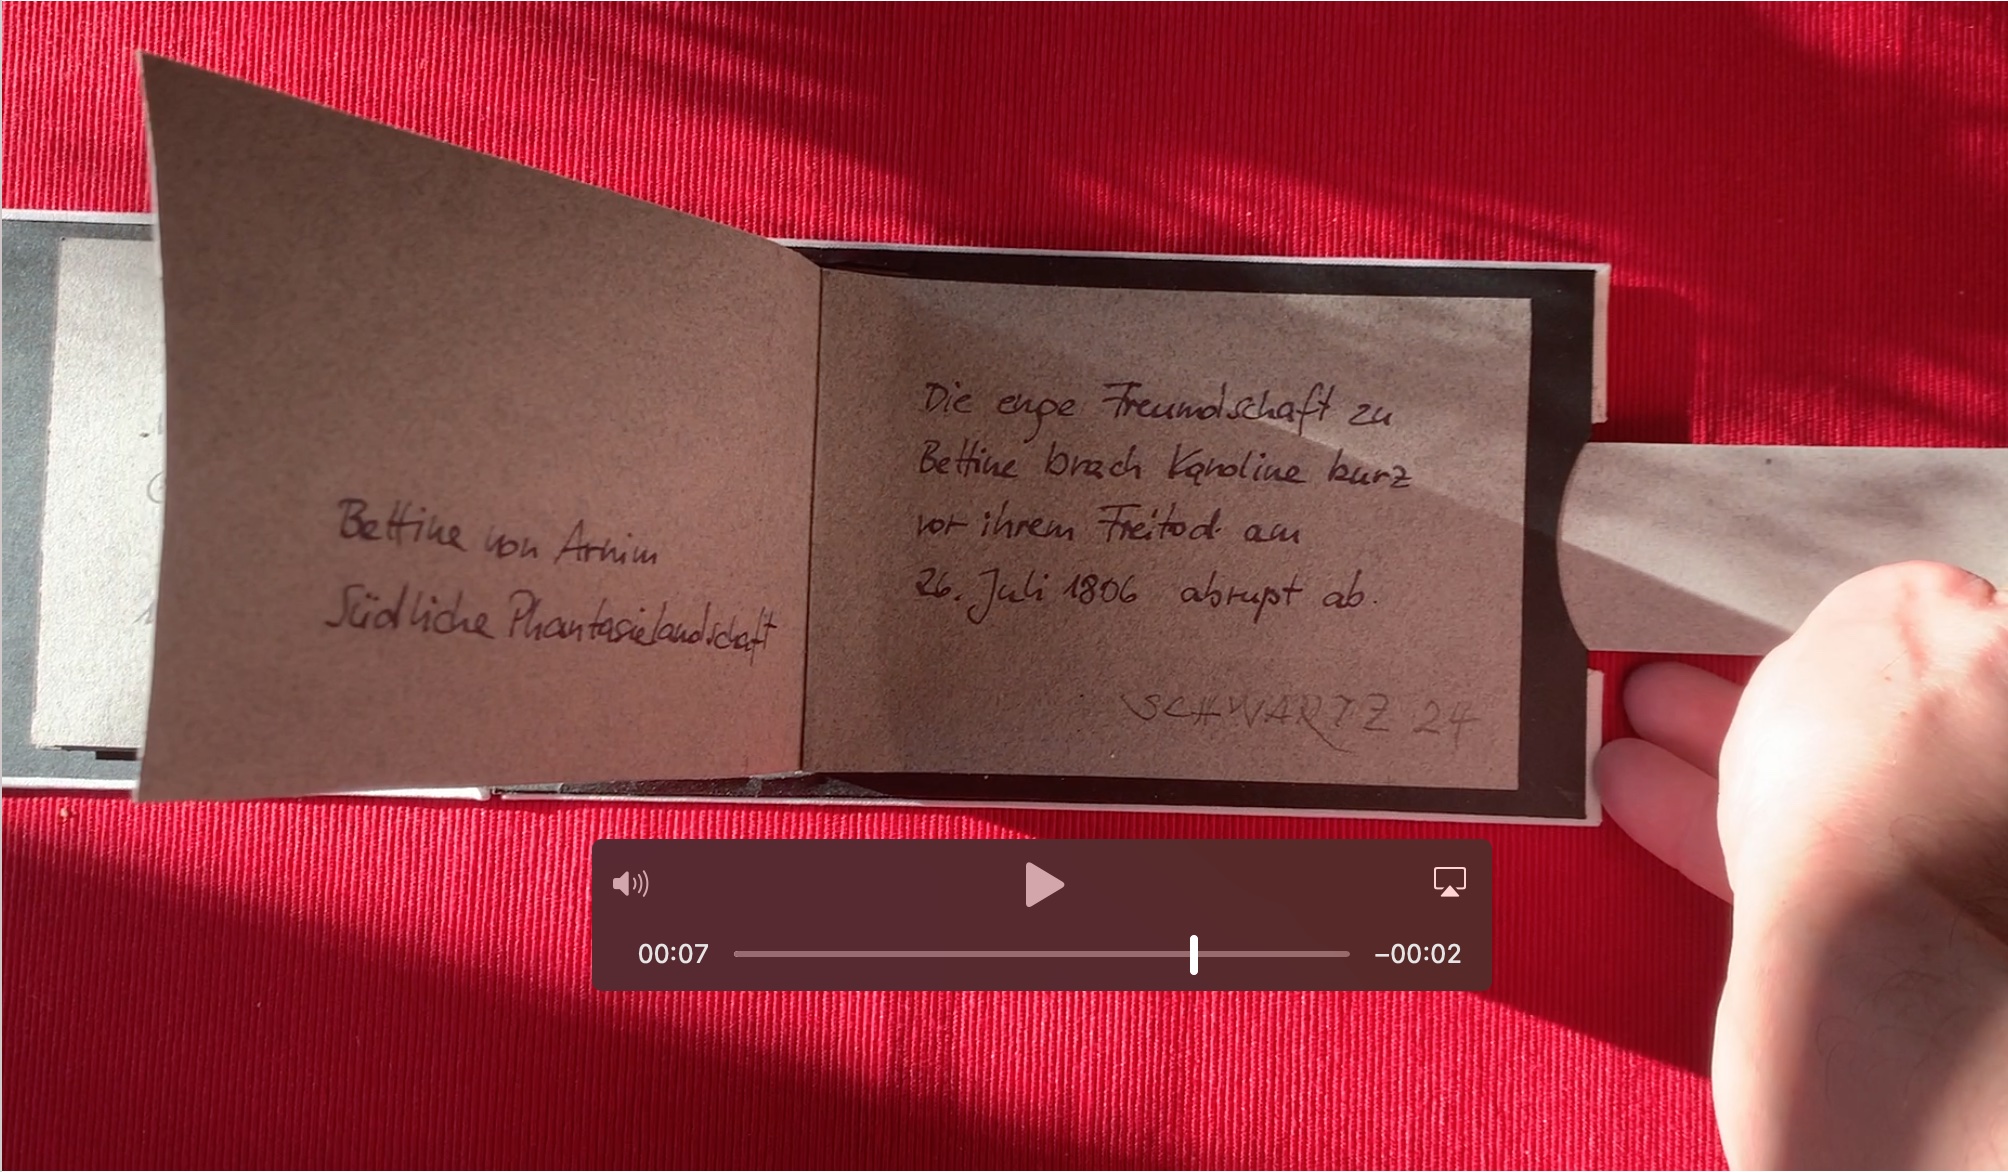 Bettine von Arnim
Südliche Phantasielandschaft
Die enge Freundschaft zu
Bettine brach Karoline kurz
vor ihrem Freitod am
26. Juli 1806 abrupt ab.
SCHWARTZ 24
00:07
−00:02